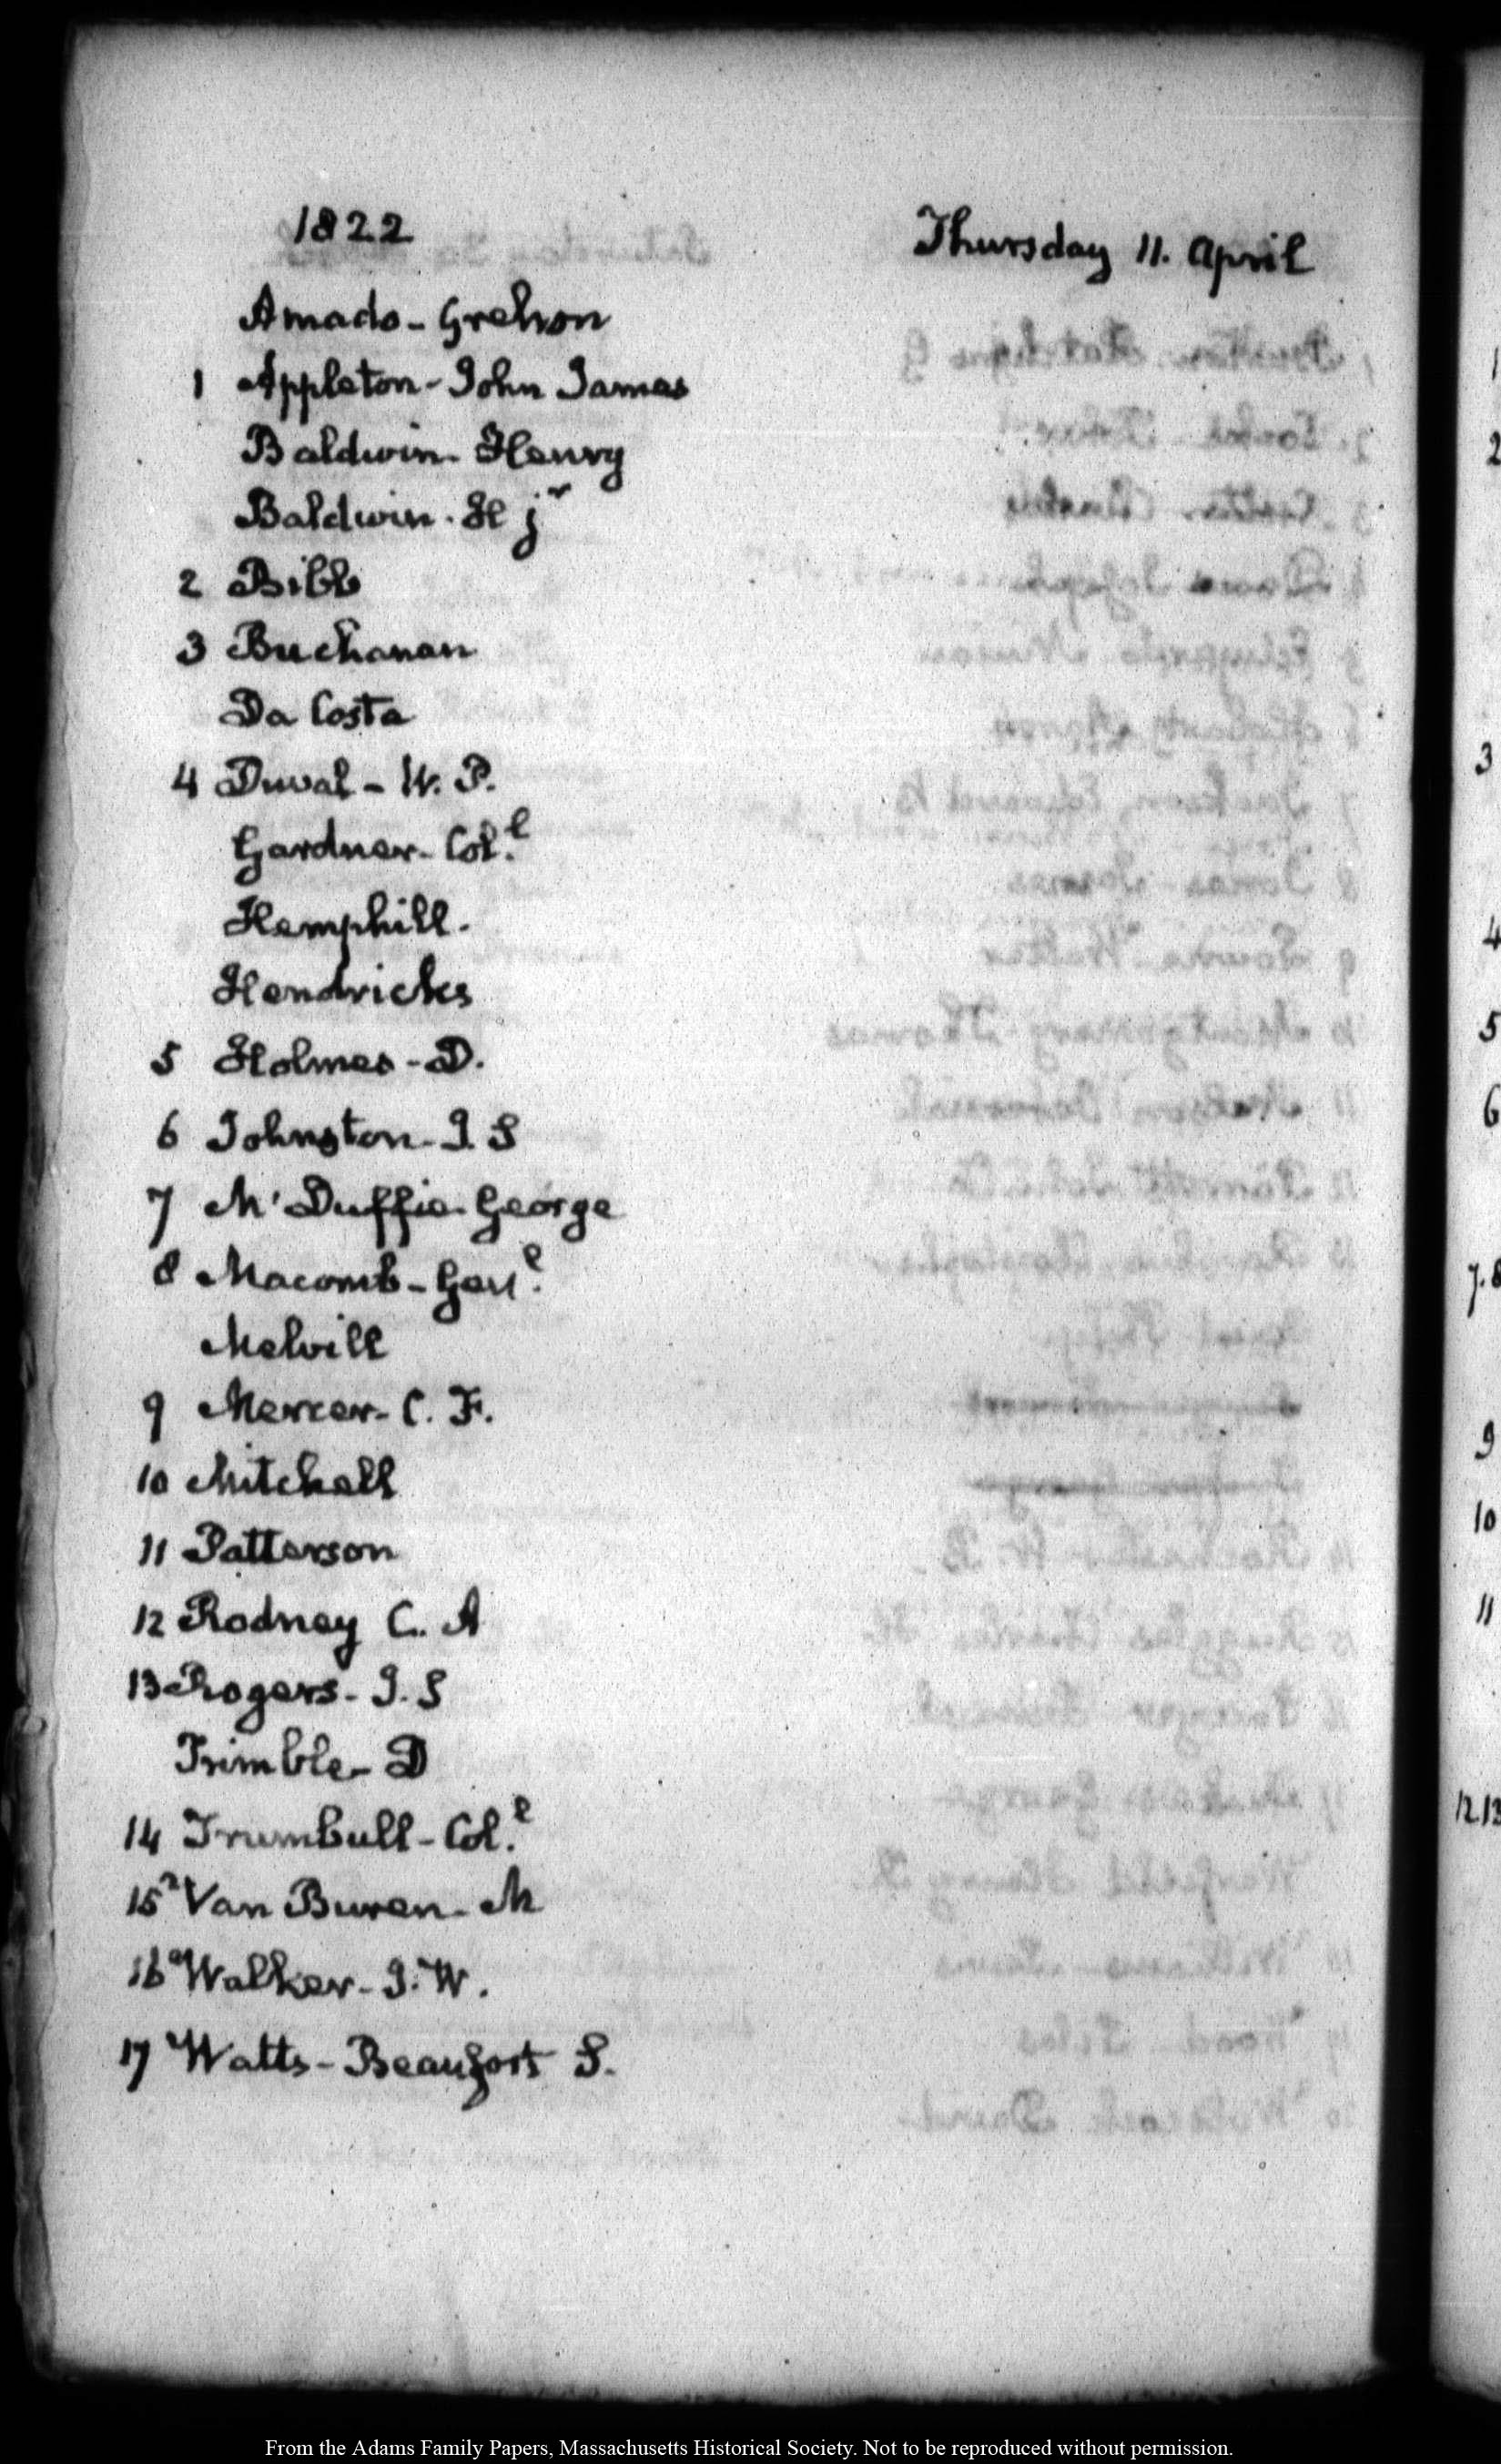 1822 Thursday 11. April
Amado - Grehon
1 Appleton - John James
Baldwin - Henry
Baldwin - H jr
2 Bibb
3 Buchanan
Da Costa
4 Duval - W. P.
Gardner - Col.l
Hemphill.
Hendricks
5 Holmes - D.
6 Johnston - J. S
7 McDuffie - George
8 Macomb - Genl.
Melvill
9 Mercer - C. F.
10 Mitchell
11 Patterson
12 Rodney C. A
13 Rogers - J. S
Trimble - D
14 Trumbull - Col.l
15 Van Buren - M
16 Walker - J. W.
17 Watts - Beaufort S.
1
2
3
4
5
6
7.8
9
10
11
12.13
From the Adams Family Papers, Massachusetts Historical Society. Not to be reproduced without permission.